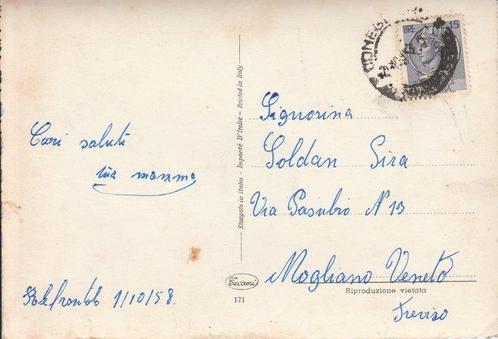 Cari saluti
tua mamma
Refrontolo 1/10/58
Signorina
Soldan Gira
Via Pasubio N 13
Mogliano Veneto
Treviso
Riproduzione vietata
Stampato in Italia - Importé D'Italie - Printed in Italy
171
LIRE 15